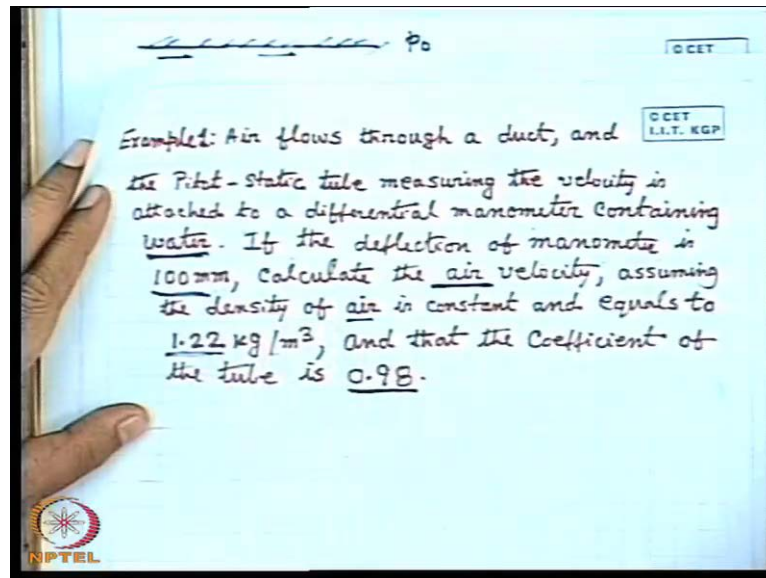 p₀
© CET
© CET
I.I.T. KGP
Example1: Air flows through a duct, and
the Pitot-static tube measuring the velocity is
attached to a differential manometer containing
water. If the deflection of manometer is
100mm, calculate the air velocity, assuming
the density of air is constant and equals to
1.22 kg/m³, and that the coefficient of
the tube is 0.98.
NPTEL